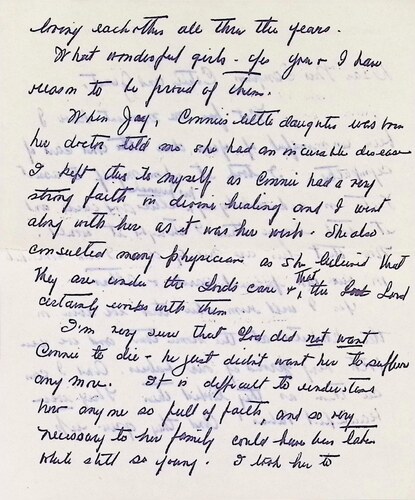 loving each other all thru the years.
What wonderful girls - yes you & I have
reason to be proud of them.
When Jay, Connie's little daughter was born
her doctor told me she had an incurable disease
I kept this to myself as Connie had a very
strong faith in divine healing and I went
along with her as it was her wish. She also
consulted many physicians as she believed that
they are under the Lords care & that the Lord
certainly works with them
I'm very sure that God did not want
Connie to die - he just didn't want her to suffer
any more. It is difficult to understand
how anyone so full of faith, and so very
necessary to her family could have been taken
while still so young. I took her to